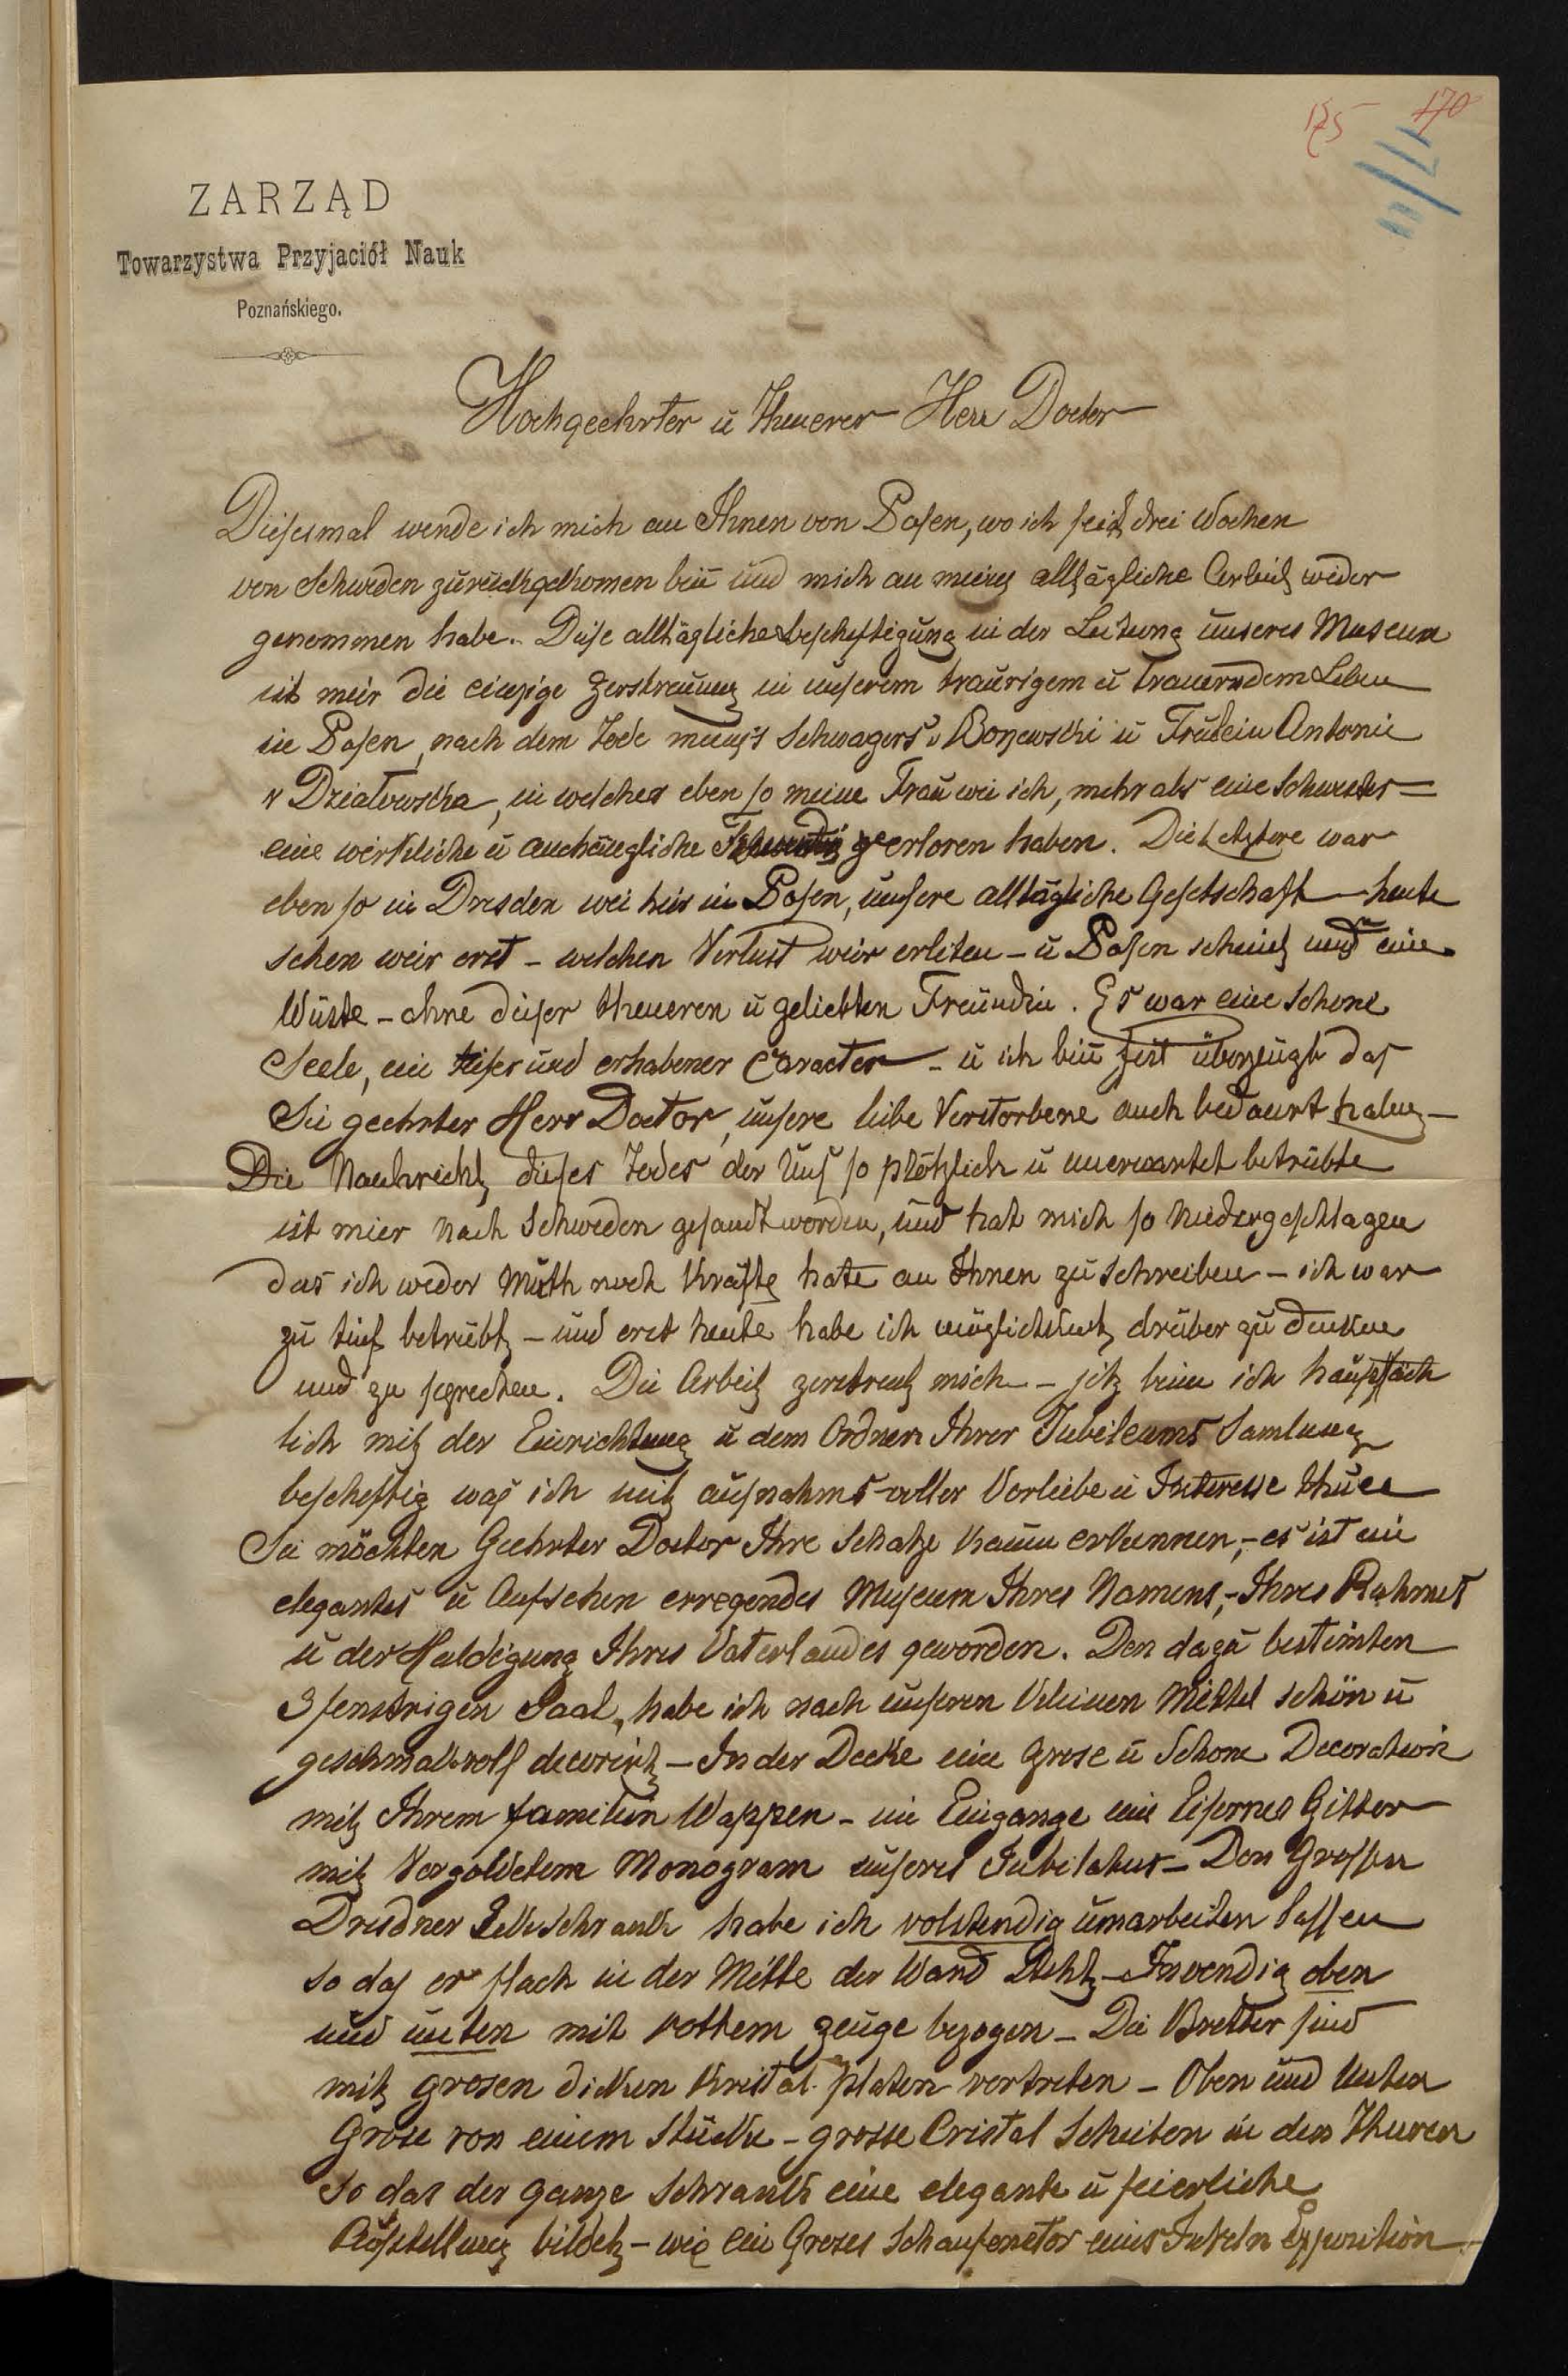 175 170
11/17
ZARZĄD
Towarzystwa Przyjaciół Nauk
Poznańskiego.
Hochgeehrter ü Theuerer Herr Doctor
Diesesmal wende ich mich an Ihnen von Posen, wo ich seit drei Wochen
von Schweden zürückgekomen bin und mich an meine alltägliche Arbeit wider
genommen habe. Diese alltägliche bescheftigung in der Leitung unseres Museum
ist meir die einzige Zerstreuung in unserem traurigem ü trauerndem Leben
in Posen, nach dem Tode meines Schwagers v Bojewski ü Fräulein Antonie
v Działowska, in welcher eben so meine Frau wie ich, mehr als eine Schwester =
eine wirkliche ü anhängliche verloren haben. Die Letztere war
eben so in Dresden wie hier in Posen, unsere alltägliche Geselschaft – heute
sehen weir erst – welchen Verlust weir erliten – ü Posen scheint uns eine
Wüste – ohne dieser theueren ü geliebten Freundin. Es war eine schone
Seele, ein tiefer und erhabener Caracter – ü ich bin fest überzeugt das
Sie geehrter Herr Doctor, unsere liebe Verstorbene auch bedauert haben –
Die Nachricht dieses Todes der Uns so plötzlich ü unerwartet betrübte
ist mier nach Schweden gesandt worden, und hat mich so niedergeschlagen
das ich weder Muth noch Kräfte hate an Ihnen zu schreiben – ich war
zu tief betrübt – und erst heute habe ich möglichkeit drüber zu denken
und zu sprechen. Die Arbeit zerstreut mich – jetz binn ich haupsäch
lich mit der Einrichtung ü dem Ordnen Ihrer Jubileums Samlung
bescheftig was ich mit aufnahms-voller Vorliebe ü Interesse thue
Sie möchten Geehrter Doctor Ihre Schatze kaum erkennen, – es ist ein
elegantes ü Aufsehen erregendes Museum Ihres Namens, – Ihres Ruhmes
ü der Huldigung Ihres Vaterlandes geworden. Den dazu bestimten
3 fenstrigen Saal, habe ich nach unseren kleinen Mittel schön ü
geschmakvoll decorirt – In der Decke eine grose ü Schone Decoration
mit Ihrem familien Wappen – im Eingange ein Eisernes Gitter
mit Vergoldetem Monogram unseres Jubilatus – Den Grossen
Dresdner Eckschrank habe ich volstendig umarbeiten lassen
so das er flach in der Mitte der Wand steht – Invendig oben
und unten mit rottem zeuge bezogen – Die Bretter sind
mit grosen dicken Kristal-platen vertreten – Oben und Unten
Grose von einem Stücke – grosse Cristal Scheiben in den Thuren
so das der ganze Schrank eine elegante ü feierliche
Aufstellung bildet – wie ein Groses Schaufenster eines Juveln Exposition –